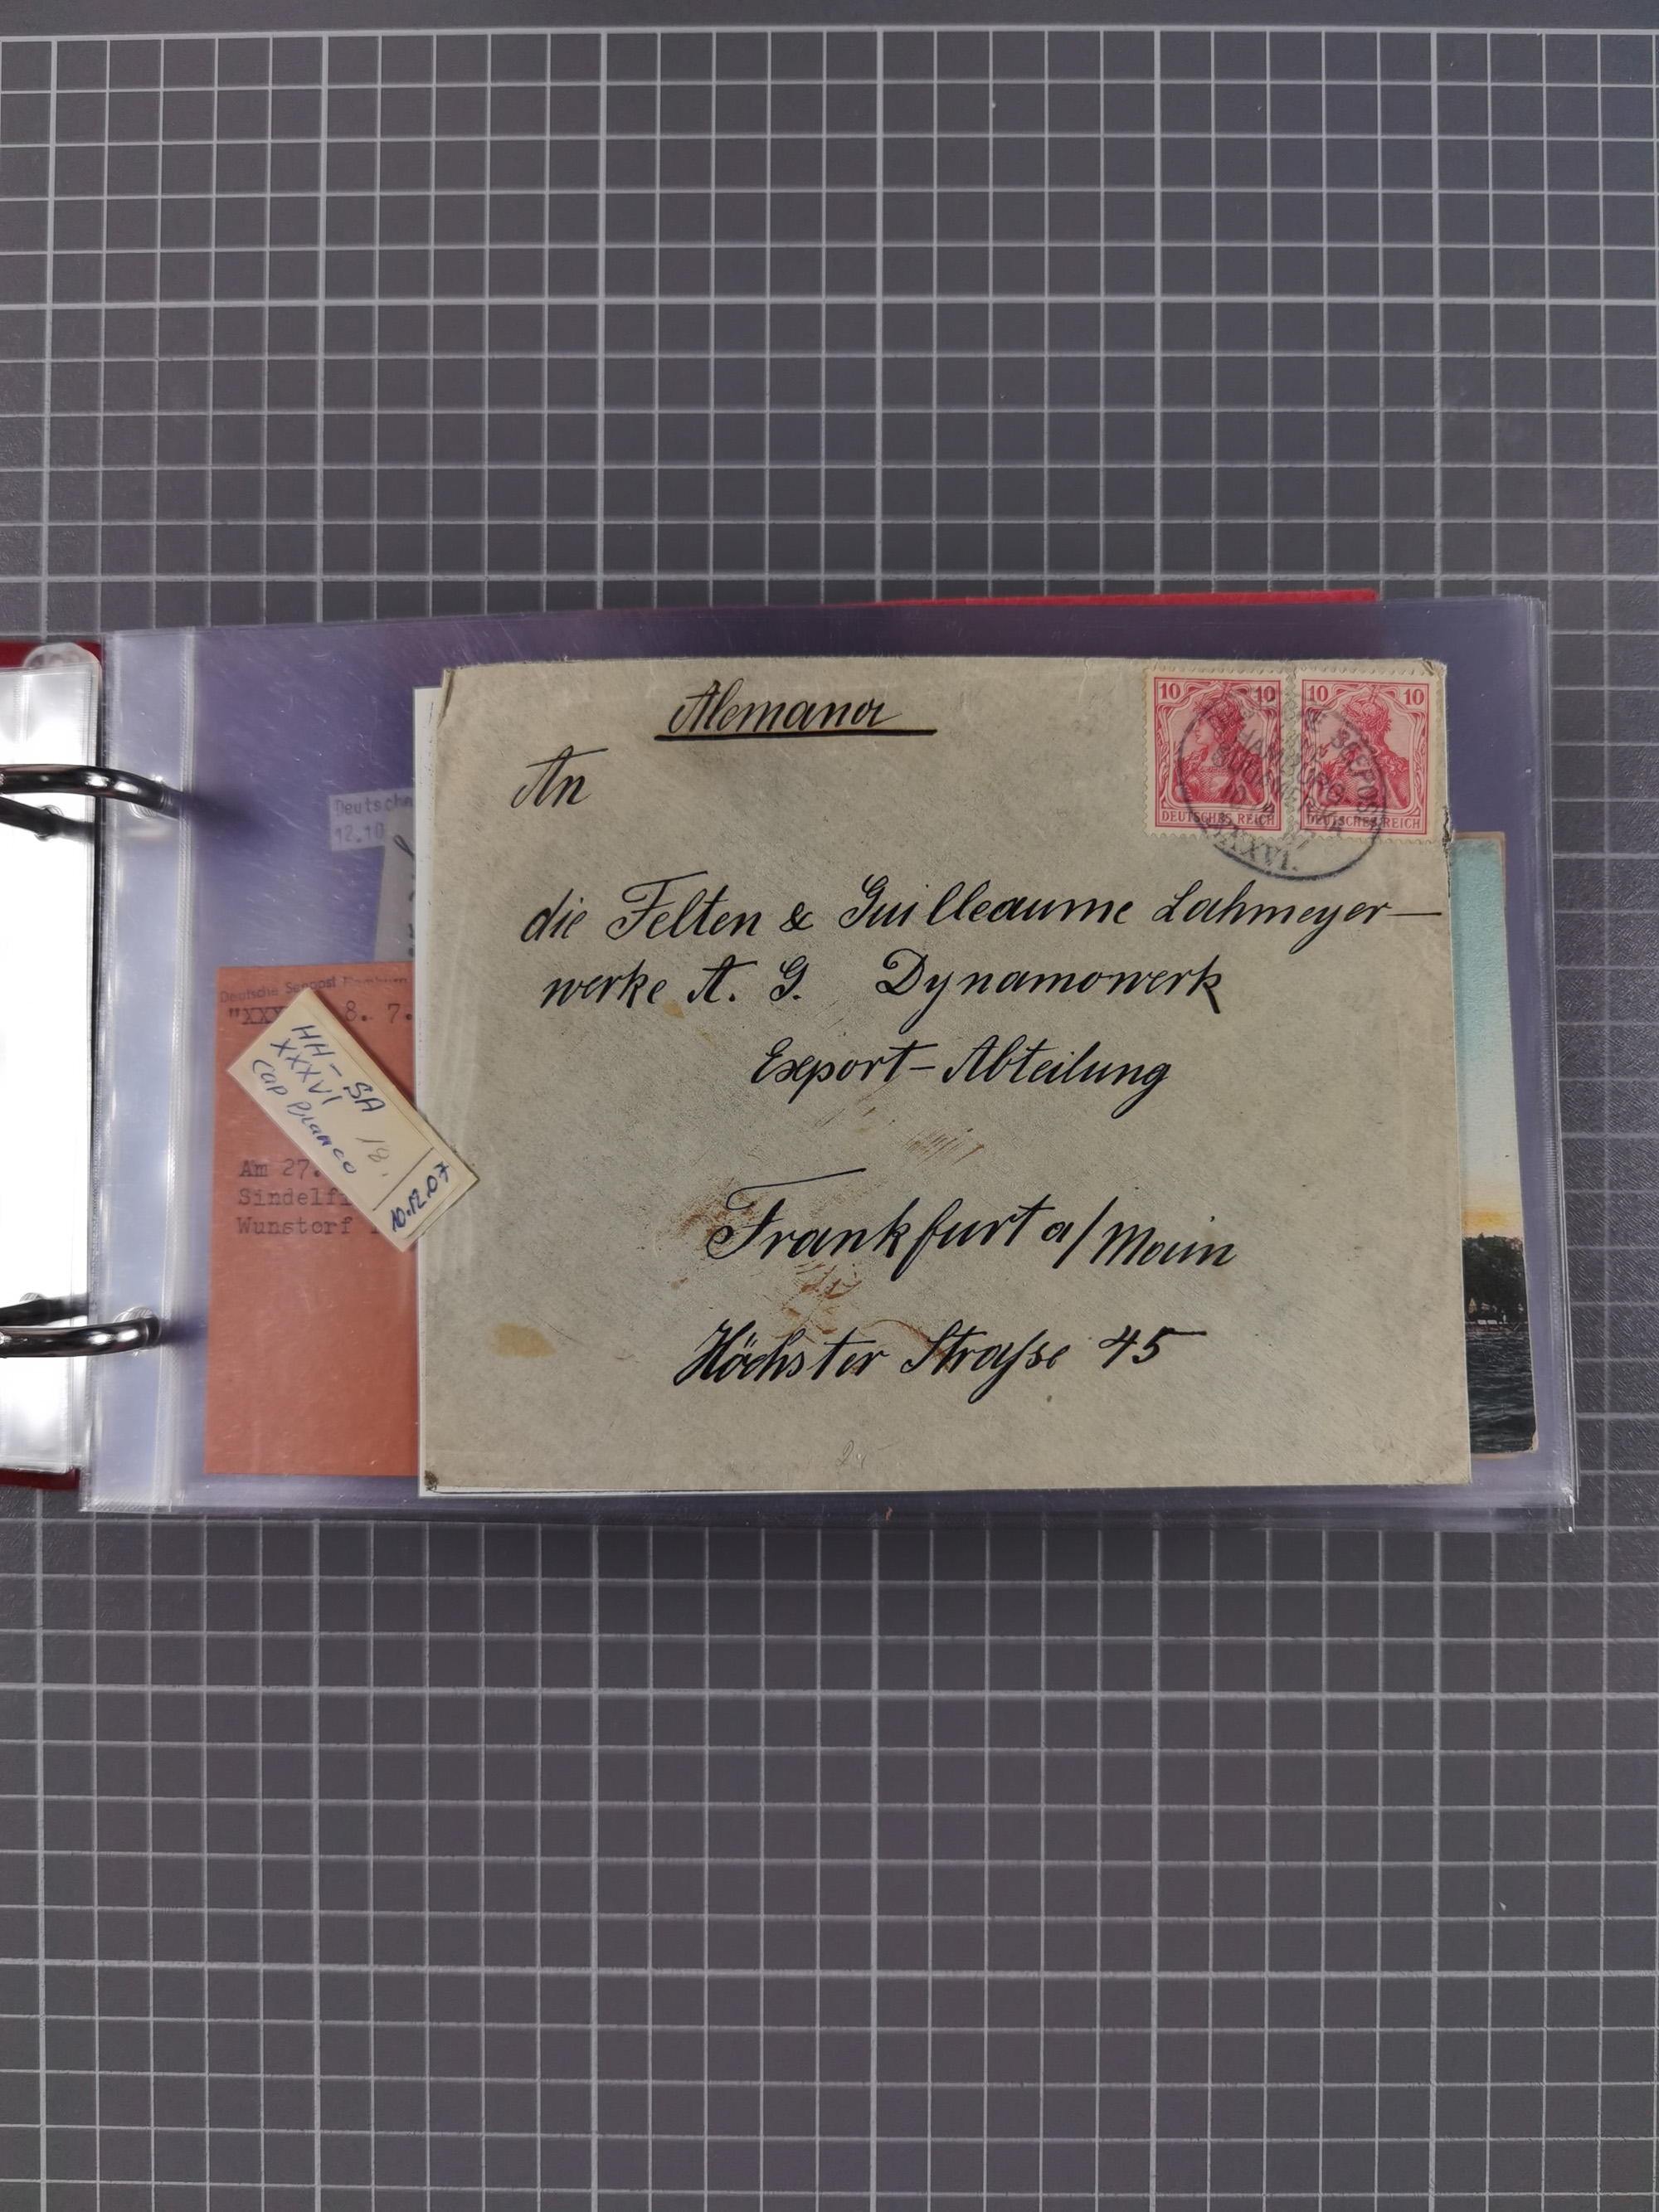 Alemana
An
die Felten & Guilleaume Lahmeyer—
werke A. G. Dynamowerk
Export-Abteilung
Frankfurt a/Main
Höchster Strasse 45
10 10
DEUTSCHES REICH
10 10
DEUTSCHES REICH
DEUTSCHE SEEPOST
HAMBURG
SÜDAMERIKA
10
XXXVI.
Deutsche
12.10
Deutsche Seepost Hamburg
8. 7.
Am 27.
Sindelfi
Wunstorf
HH-SA
XXXVI
Cap Blanco
18.
10.12.07